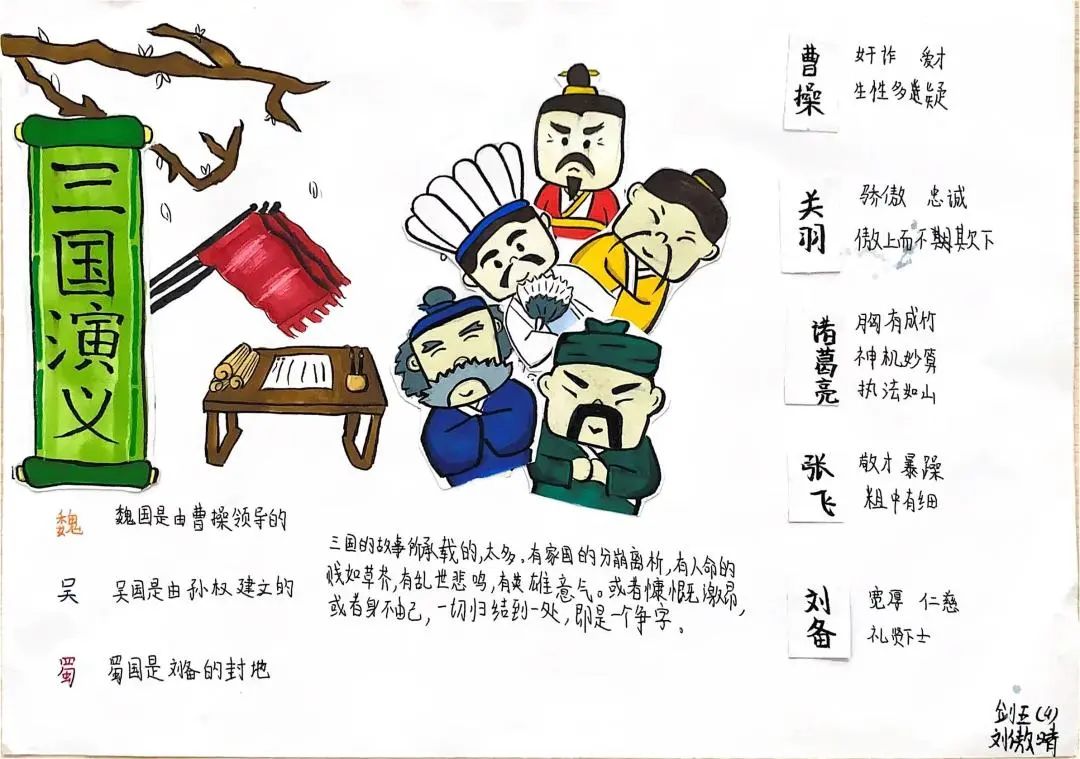 三国演义
魏 魏国是由曹操领导的
吴 吴国是由孙权建文的
蜀 蜀国是刘备的封地
三国的故事所承载的,太多。有家国的分崩离析,有人命的
贱如草芥,有乱世悲鸣,有英雄意气。或者慷慨激昂,
或者身不由己,一切归结到一处,即是一个争字。
曹操
奸诈 爱才
生性多疑
关羽
骄傲 忠诚
傲上而不欺下
诸葛亮
胸有成竹
神机妙算
执法如山
张飞
敬才 暴躁
粗中有细
刘备
宽厚 仁慈
礼贤下士
剑五(4)
刘傲晴